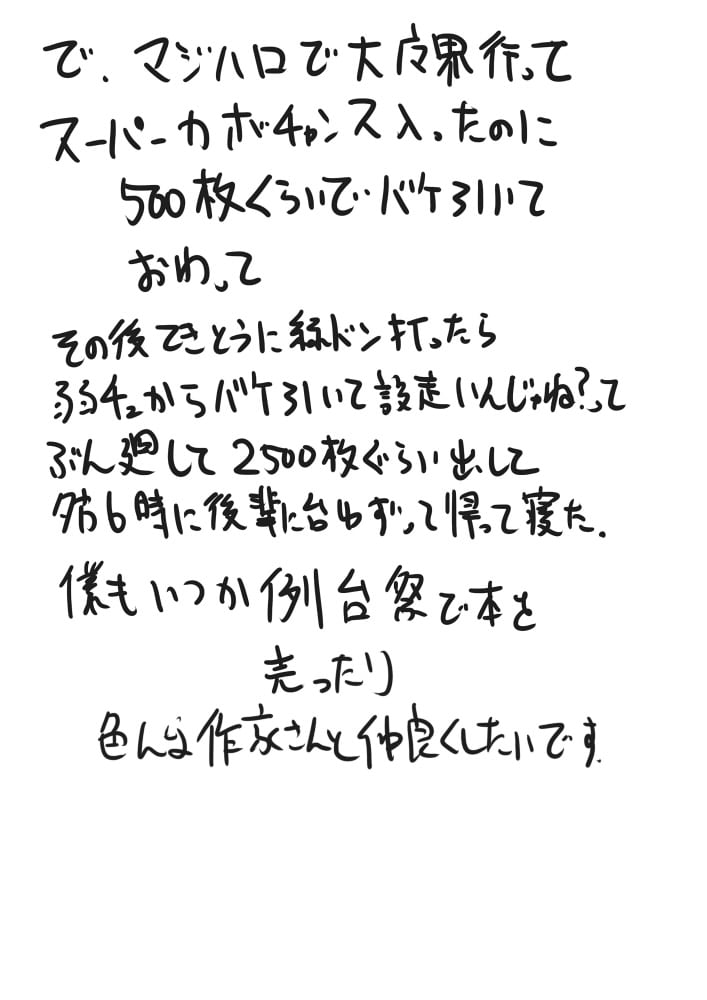 で、マジハロで大皮果行って
スーパーカボチャンス入ったのに
500枚くらいでバケ引いて
おわって
その後てきとうに緑ドン打ったら
弱チェからバケ引いて設定いんじゃね?って
ぶん廻して2500枚ぐらい出して
夕方6時に後輩に台ゆずって帰って寝た.
僕もいつか例台祭で本を
売ったり
色んな作家さんと仲良くしたいです.